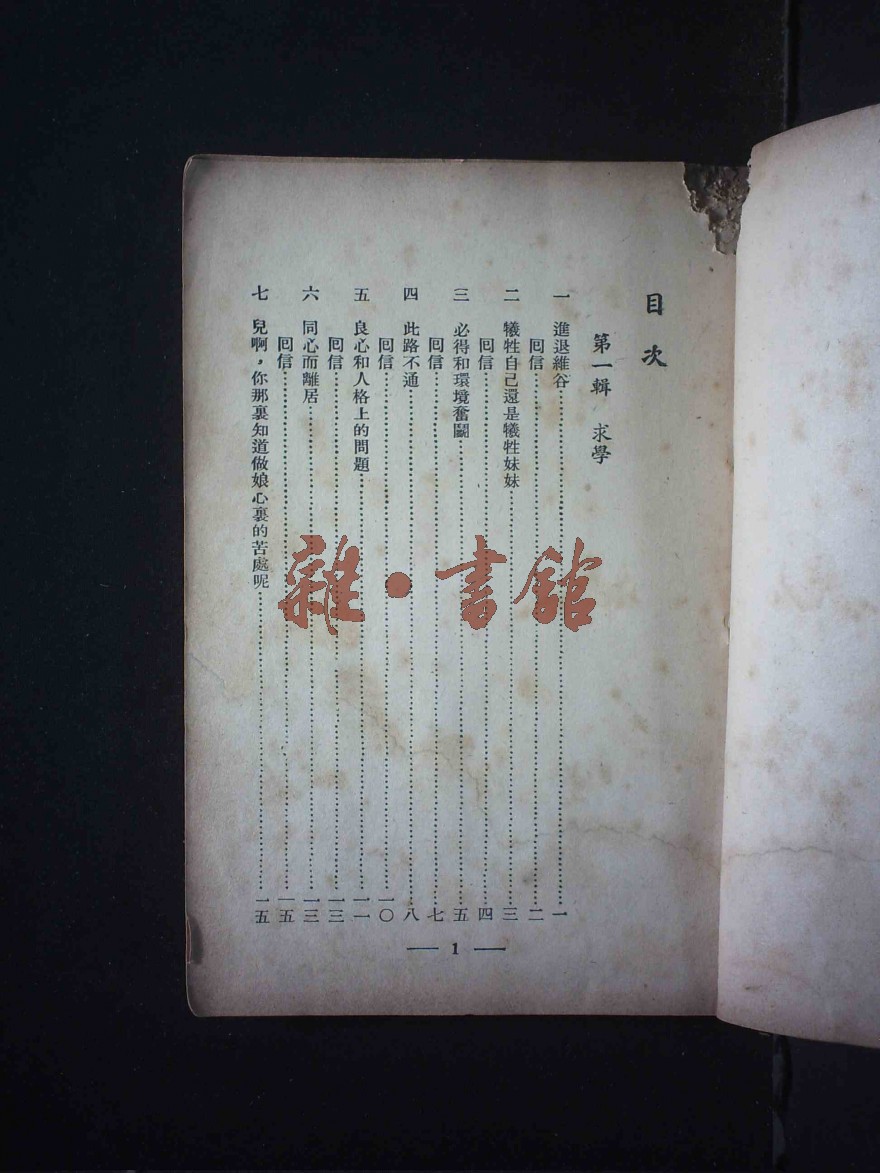 目次
第一輯 求學
一 進退維谷……一
囘信……二
二 犧牲自己還是犧牲妹妹……三
囘信……四
三 必得和環境奮鬭……五
囘信……七
四 此路不通……八
囘信……一〇
五 良心和人格上的問題……一一
囘信……一三
六 同心而離居……一三
囘信……一五
七 兒啊，你那裏知道做娘心裏的苦處呢……一五
— 1 —
雜·書館